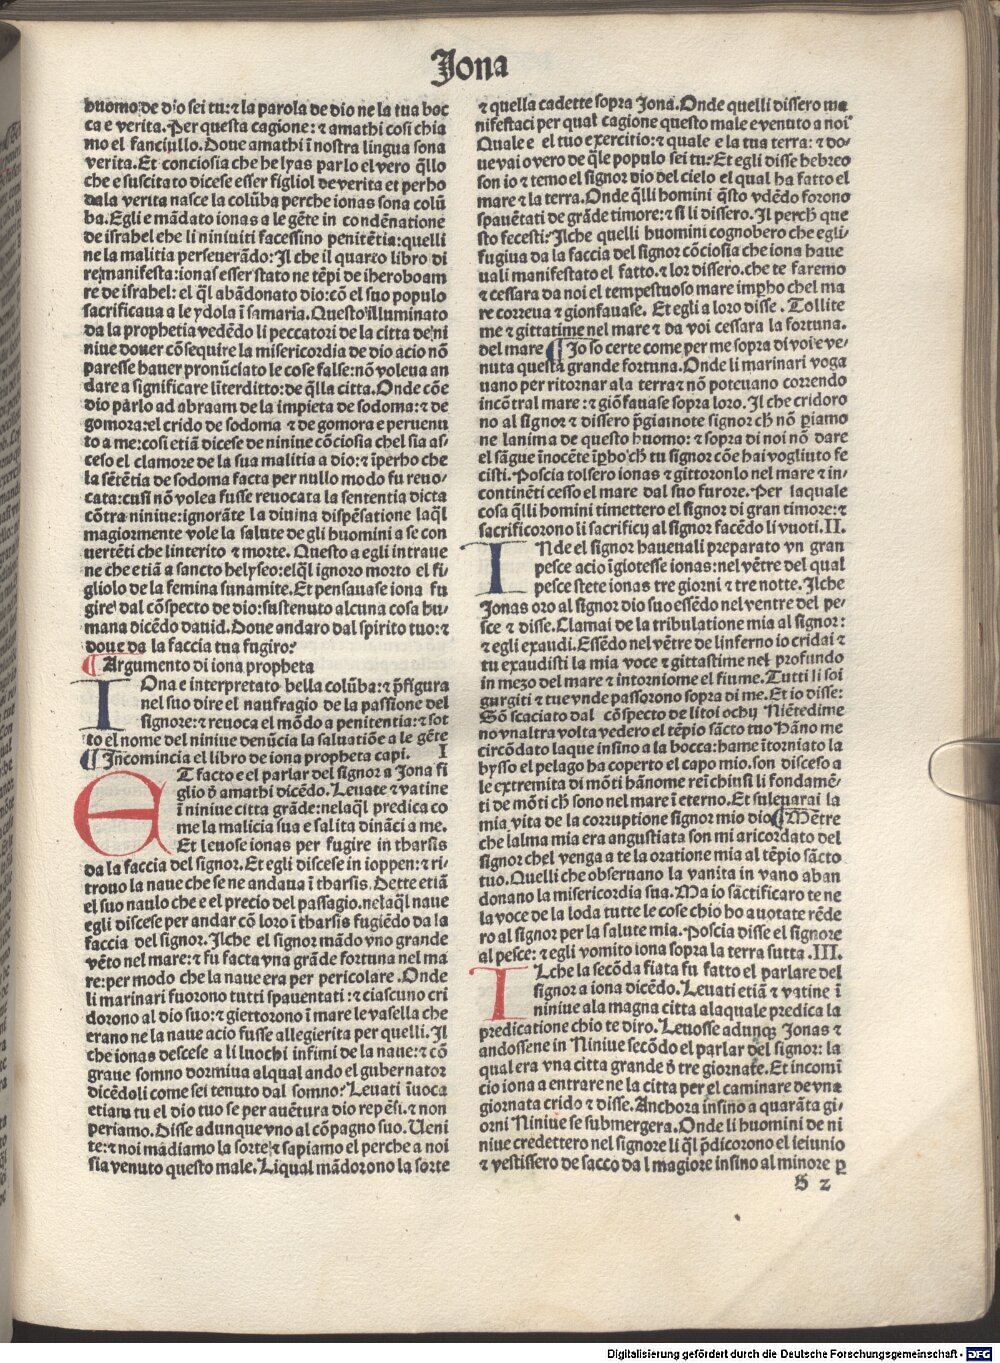 Jona
huomo de dio sei tu:⁊ la parola de dio ne la tua boc
ca e verita. Per questa cagione: ⁊ amathi cosi chia
mo el fanciullo. Doue amathi ī nostra lingua sona
verita. Et conciosia che helyas parlo el vero q̄llo
che e suscitato dicese esser figliol de verita et perho
da la verita nasce la colūba perche ionas sona colū
ba. Egli e mādato ionas a le gēte in condēnatione
de israhel che li niniuiti facessino penitētia: quelli
ne la malitia perseuerādo: Il che il quarto libro di
re manifesta: ionas esser stato ne tēpi de iheroboam
re de israhel: el q̄l abādonato dio: cō el suo populo
sacrificaua a le ydola ī samaria. Questo illuminato
da la prophetia vedēdo li peccatori de la citta de ni
niue douer cōsequire la misericordia de dio acio nō
paresse hauer pronūciato le cose false: nō voleua an
dare a significare līterditto: de q̄lla citta. Onde cōe
dio parlo ad abraam de la impieta de sodoma: ⁊ de
gomora: el crido de sodoma ⁊ de gomora e peruenu
to a me: cosi etiā dicese de niniue cōciosia chel sia as⸗
ceso el clamore de la sua malitia a dio: ⁊ īperho che
la sētētia de sodoma facta per nullo modo fu reuo⸗
cata: cusi nō volea fusse reuocata la sententia dicta
cōtra niniue: ignorāte la diuina dispēsatione laq̄l
magiormente vole la salute de gli huomini a se con
uertēti che linterito ⁊ morte. Questo a egli intraue
ne che etiā a sancto helyseo: elq̄l ignoro morto el fi⸗
gliolo de la femina sunamite. Et pensauase iona fu
gire dal cōspecto de dio: sustenuto alcuna cosa hu⸗
mana dicēdo dauid. Doue andaro dal spirito tuo: ⁊
doue da la faccia tua fugiro?
¶ Argumento di iona propheta
IOna e interpretato bella colūba: ⁊ p̄figura
nel suo dire el naufragio de la passione del
signore: ⁊ reuoca el mōdo a penitentia: ⁊ sot
to el nome del niniue denūcia la saluatiōe a le gēte
¶ Incomincia el libro de iona propheta capi. I
ET facto e el parlar del signor a Jona fi
glio d̄ amathi dicēdo. Leuate ⁊ vatine
ī niniue citta grāde: nelaq̄l predica co
me la malicia sua e salita dināci a me.
Et leuose ionas per fugire in tharsis
da la faccia del signor. Et egli discese in ioppen: ⁊ ri⸗
trono la naue che se ne andaua ī tharsis. Dette etiā
el suo naulo che e el precio del passagio. nelaq̄l naue
egli discese per andar cō loro ī tharsis fugiēdo da la
faccia del signor. Ilche el signor mādo vno grande
vēto nel mare: ⁊ fu facta vna grāde fortuna nel ma
re: per modo che la naue era per pericolare. Onde
li marinari fuorono tutti spauentati: ⁊ ciascuno cri
dorono al dio suo: ⁊ giettorono ī mare le vasella che
erano ne la naue acio fusse allegierita per quelli. Il
che ionas descese a li luochi infimi de la naue: ⁊ cō
graue somno dormiua alqual ando el gubernator
dicēdoli come sei tenuto dal somno? Leuati īuoca
etiam tu el dio tuo se per auētura dio repēsi. ⁊ non
periamo. Disse adunque vno al cōpagno suo. Ueni
te: ⁊ noi mādiamo la sorte ⁊ sapiamo el perche a noi
sia venuto questo male. Liqual mādorono la sorte
⁊ quella cadette sopra Jona. Onde quelli dissero ma
nifestaci per qual cagione questo male e venuto a noi
Quale e el tuo exercitio: ⁊ quale e la tua terra: ⁊ do⸗
ue vai o vero de q̄le populo sei tu? Et egli disse hebreo
son io ⁊ temo el signor dio del cielo el qual ha fatto el
mare ⁊ la terra. Onde q̄lli homini q̄sto vdēdo forono
spauētati de grāde timore: ⁊ si li dissero. Il perch̄ que
sto fecesti? Ilche quelli huomini cognobero che egli
fugiua da la faccia del signor cōciosia che iona haue
uali manifestato el fatto. ⁊ lor dissero. che te faremo
⁊ cessara da noi el tempestuoso mare imp̱ho chel ma
re correua ⁊ gionfauase. Et egli a loro disse. Tollite
me ⁊ gittatime nel mare ⁊ da voi cessara la fortuna.
del mare ¶ Jo so certe come per me sopra di voi e ve⸗
nuta questa grande fortuna. Onde li marinari voga
uano per ritornar a la terra ⁊ nō poteuano correndo
incōtral mare: ⁊ giōfauase sopra loro. Il che cridoro
no al signor ⁊ dissero p̄giamote signor ch̄ nō ꝑiamo
ne lanima de questo huomo: ⁊ sopra di noi nō dare
el sāgue inocēte īp̱ho ch̄ tu signor cōe hai vogliuto fe
cisti. Poscia tolsero ionas ⁊ gittoronlo nel mare ⁊ in⸗
continēti cesso el mare dal suo furore. Per laquale
cosa q̄lli homini timettero el signor di gran timore: ⁊
sacrificorono li sacrificij al signor facēdo li vuoti. II.
INde el signor haueuali preparato vn gran
pesce acio īgiotesse ionas: nel vētre del qual
pesce stete ionas tre giorni ⁊ tre notte. Ilche
Jonas oro al signor dio suo essēdo nel ventre del pe⸗
sce ⁊ disse. Clamai de la tribulatione mia al signor:
⁊ egli exaudi. Essēdo nel vētre de linferno io cridai ⁊
tu exaudisti la mia voce ⁊ gittastime nel profundo
in mezo del mare ⁊ intorniome el fiume. Tutti li soi
gurgiti ⁊ tue vnde passorono sopra di me. Et io disse:
Sō scaciato dal cōspecto de li toi ochij Niētedime
no vnaltra volta vedero el tēpio sācto tuo Hāno me
circōdato laque insino a la bocca: hame ītorniato la
bysso el pelago ha coperto el capo mio. son disceso a
le extremita di mōti hānome reīchiusi li fondamē⸗
ti de mōti ch̄ sono nel mare ī eterno. Et suleuarai la
mia vita de la corruptione signor mio dio ¶ Mētre
che lalma mia era angustiata son mi aricordato del
signor chel venga a te la oratione mia al tēpio sācto
tuo. Quelli che obseruano la vanita in vano aban
donano la misericordia sua. Ma io sāctificaro te ne
la voce de la loda tutte le cose chio ho auotate rēde
ro al signor per la salute mia. Poscia disse el signore
al pesce: ⁊ egli vomito iona sopra la terra sutta. III.
ILche la secōda fiata fu fatto el parlare del
signor a iona dicēdo. Leuati etiā ⁊ vatine ī
niniue ala magna citta alaquale predica la
predicatione chio te diro. Leuosse adunqꝫ Jonas ⁊
andossene in Niniue secōdo el parlar del signor: la
qual era vna citta grande d̄ tre giornate. Et incomī
cio iona a entrare ne la citta per el caminare de vna
giornata crido ⁊ disse. Anchora insino a quarāta gi⸗
orni Niniue se submergera. Onde li huomini de ni
niue credettero nel signore li q̄l p̄dicorono el ieiunio
⁊ vestissero de sacco da l magiore insino al minore ꝑ
S 2
Digitalisierung gefördert durch die Deutsche Forschungsgemeinschaft - DFG